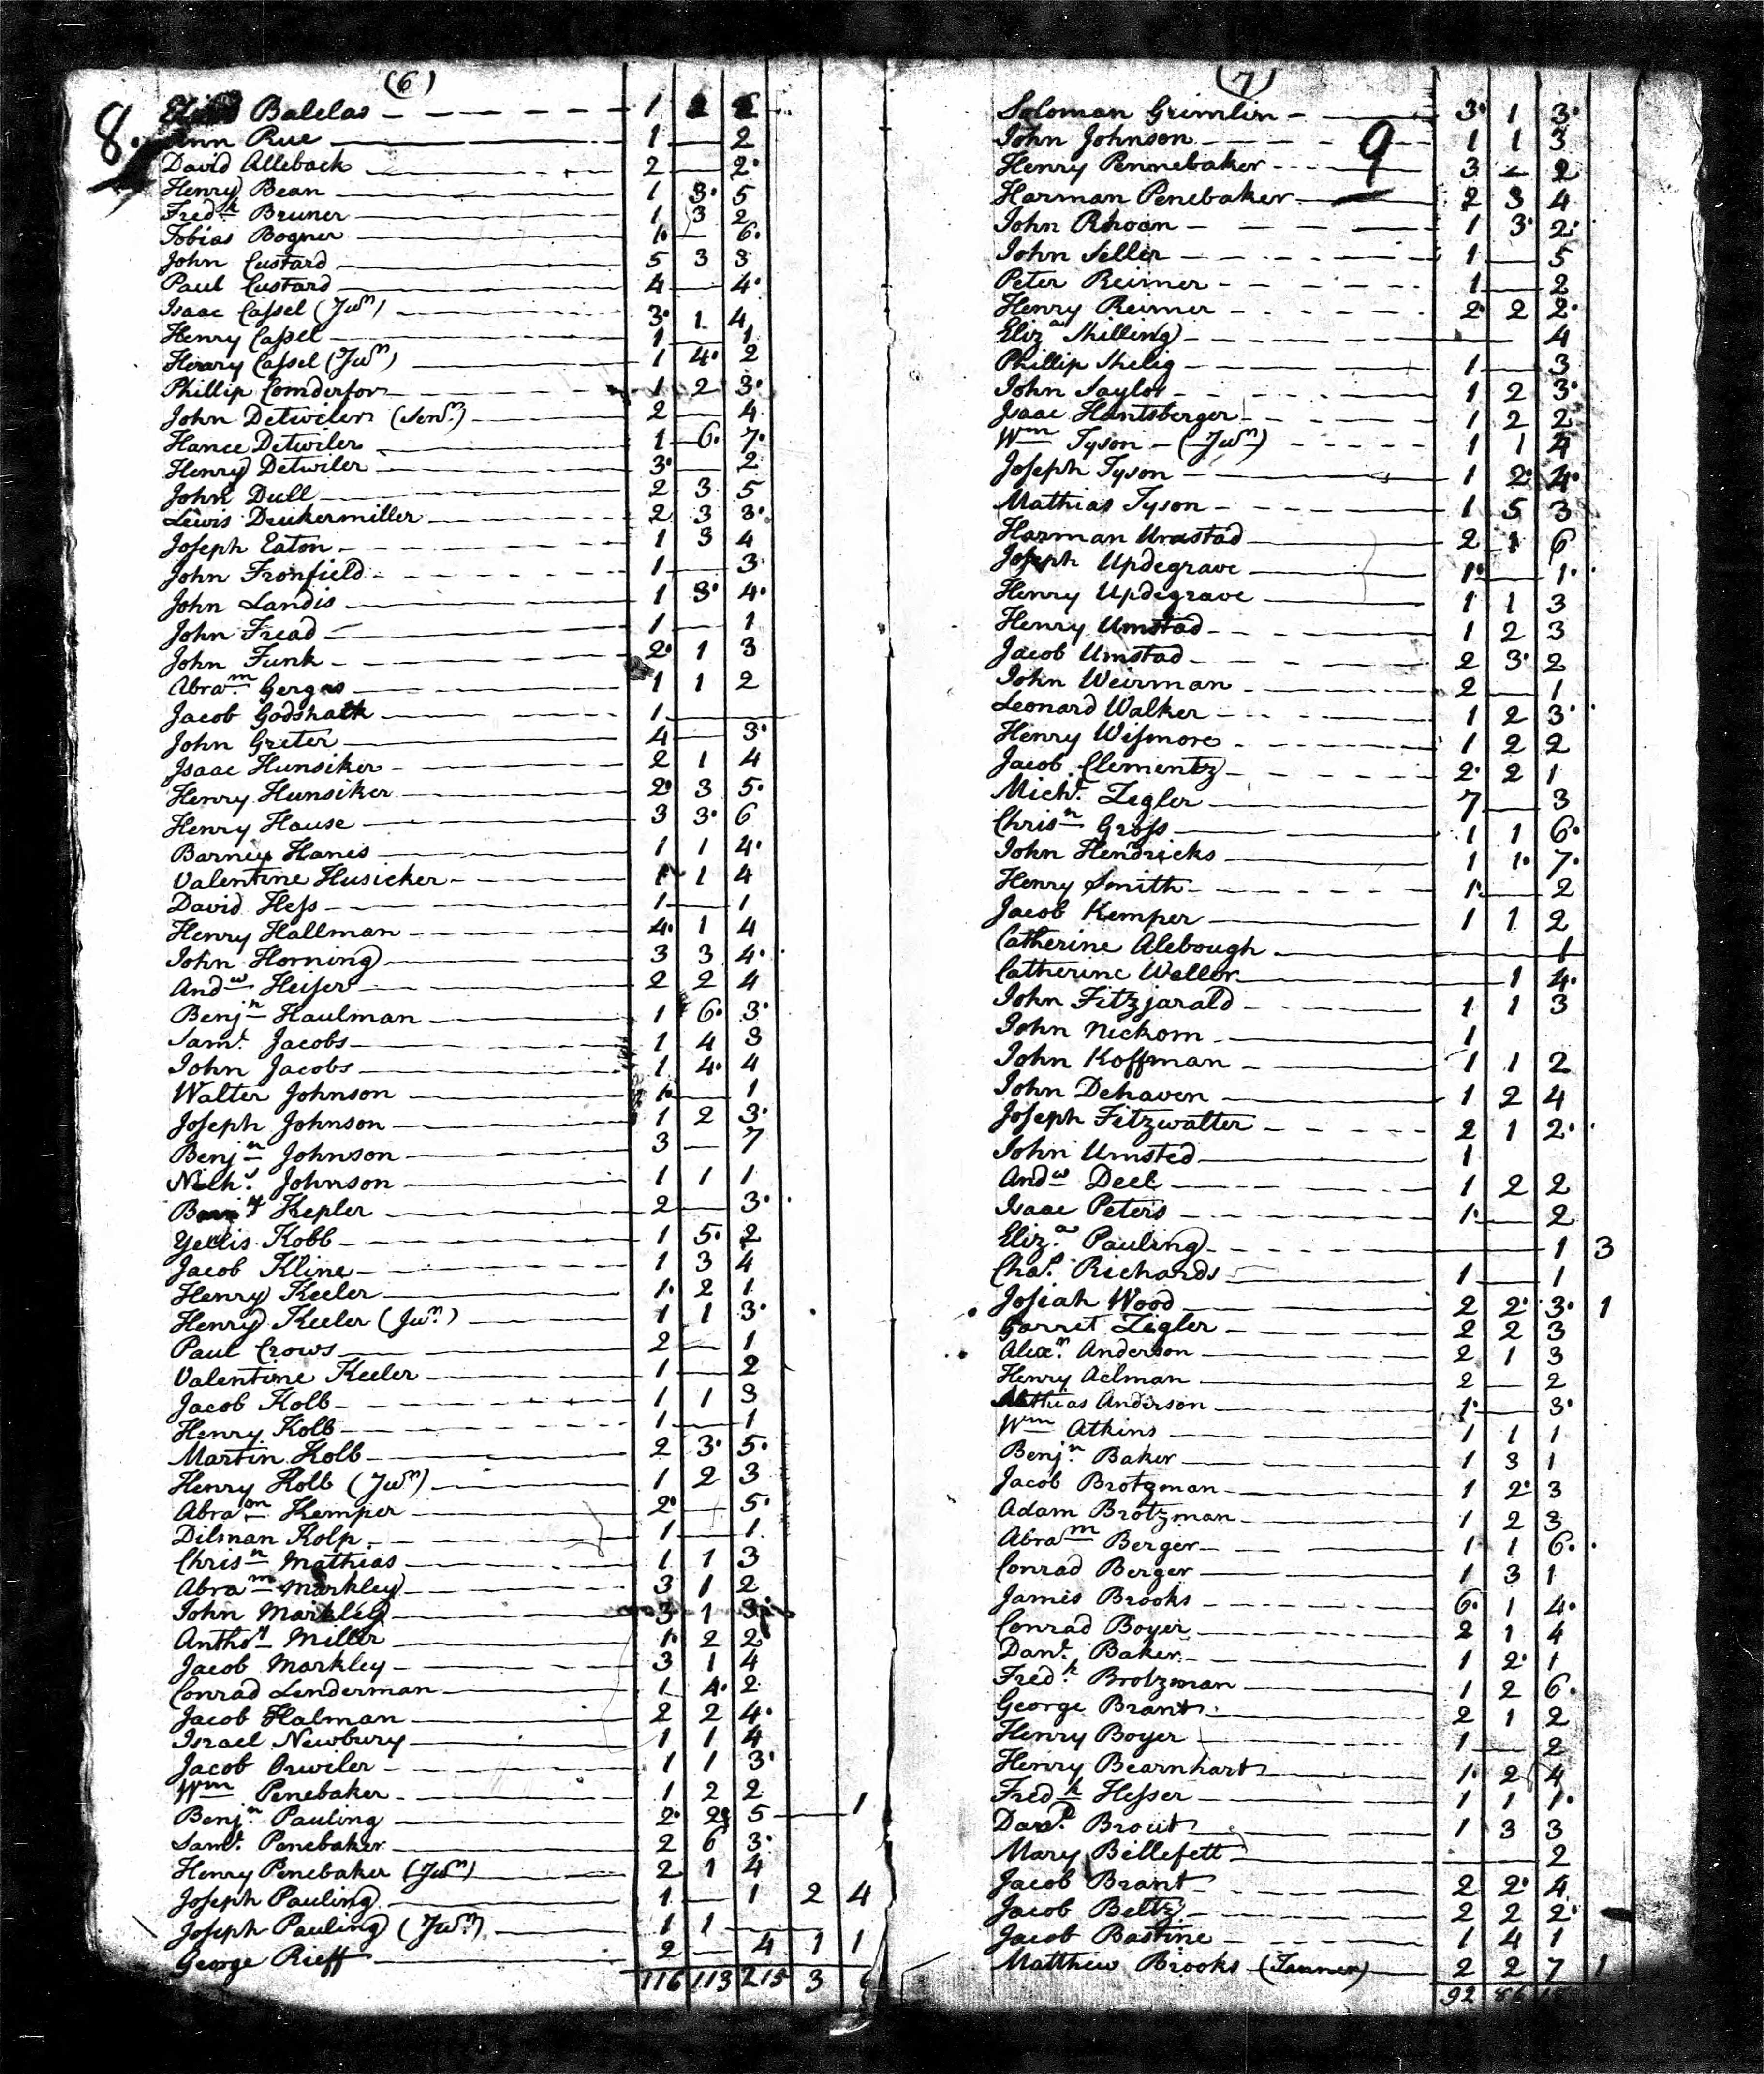 (6)
8.
Balelas 1 2
Ann Rue 1 — 2
David Alleback 2 — 2
Henry Bean 1 3 5
Fredk Bruner 1 3 2
Tobias Bogner 1 — 6
John Custard 5 3 3
Paul Custard 4 — 4
Isaac Cassel (Junr) 3 1 4
Henry Cassel 1 — 1
Henry Cassel (Junr) 1 4 2
Phillip Comderfor 1 2 3
John Detweler (Senr) 2 — 4
Hance Detwiler 1 6 7
Henry Detwiler 3 — 2
John Dull 2 3 5
Lewis Drukermiller 2 3 3
Joseph Eaton 1 3 4
John Fronfield 1 — 3
John Landis 1 3 4
John Fread 1 — 1
John Funk 2 1 3
Abram Gergas 1 1 2
Jacob Godshalk 1 — —
John Greter 4 — 3
Isaac Hunsiker 2 1 4
Henry Hunsiker 2 3 5
Henry House 3 3 6
Barney Hanes 1 1 4
Valentine Husicker 1 1 4
David Hess 1 — 1
Henry Hallman 4 1 4
John Horning 3 3 4
Andw Heiser 2 2 4
Benjn Haulman 1 6 3
Saml Jacobs 1 4 3
John Jacobs 1 4 4
Walter Johnson 1 — 1
Joseph Johnson 1 2 3
Benjn Johnson 3 — 7
Nichs Johnson 1 1 1
Kepler 2 — 3
Yellis Kobb 1 5 2
Jacob Kline 1 3 4
Henry Keeler 1 2 1
Henry Keeler (Junr) 1 1 3
Paul Crows 2 — 1
Valentine Keeler 1 — 2
Jacob Kolb 1 1 3
Henry Kolb 1 — 1
Martin Kolb 2 3 5
Henry Kolb (Junr) 1 2 3
Abram Kemper 2 — 5
Dilman Kolp 1 — 1
Chrisn Mathias 1 1 3
Abram Markley 3 1 2
John Markley 3 1 3
Anthoy Miller 1 2 2
Jacob Markley 3 1 4
Conrad Lenderman 1 4 2
Jacob Halman 2 2 4
Israel Newbury 1 1 4
Jacob Orwiler 1 1 3
Wm Penebaker 1 2 2
Benjn Pauling 2 2 5 — 1
Saml Penebaker 2 6 3
Henry Penebaker (Junr) 2 1 4
Joseph Pauling 1 — 1 2 4
Joseph Pauling (Junr) 1 1 —
George Rieff 2 — 4 1 1
116 113 215 3 6
(7)
9
Soloman Grimlin 3 1 3
John Johnson 1 1 3
Henry Pennebaker 3 – 2
Harman Penebaker 2 3 4
John Rhoan 1 3 2
John Seller 1 — 5
Peter Reimer 1 — 2
Henry Reimer 2 2 2
Eliza Shilling — 4
Phillip Shelig 1 — 3
John Taylor 1 2 3
Isaac Huntsberger 1 2 2
Wm Tyson (Junr) 1 1 4
Joseph Tyson 1 2 4
Mathias Tyson 1 5 3
Harman Umstad 2 1 6
Joseph Updegrave 1 — 1
Henry Updegrave 1 1 3
Henry Umstad 1 2 3
Jacob Umstad 2 3 2
John Weirman 2 — 1
Leonard Walker 1 2 3
Henry Wismore 1 2 2
Jacob Clementz 2 2 1
Michl Zegler 7 — 3
Chrisn Gross 1 1 6
John Hendricks 1 1 7
Henry Smith 1 — 2
Jacob Kemper 1 1 2
Catherine Alebough — 1
Catherine Weller — 1 4
John Fitzjarald 1 1 3
John Nickom 1
John Koffman 1 1 2
John Dehaven 1 2 4
Joseph Fitzwalter 2 1 2
John Umsted 1
Andw Deel 1 2 2
Isaac Peters 1 — 2
Eliza Pauling — 1 3
Chas Richards 1 — 1
Josiah Wood 2 2 3 1
Garret Zigler 2 2 3
Alexr Anderson 2 1 3
Henry Aelman 2 — 2
Mathias Anderson 1 — 3
Wm Atkins 1 1 1
Benjn Baker 1 3 1
Jacob Brotzman 1 2 3
Adam Brotzman 1 2 3
Abram Berger 1 1 6
Conrad Berger 1 3 1
James Brooks 6 1 4
Conrad Boyer 2 1 4
Danl Baker 1 2 1
Fredk Brotzman 1 2 6
George Brant 2 1 2
Henry Boyer 1 — 2
Henry Bearnhart 1 2 4
Fredk Hesser 1 1 1
Brout 1 3 3
Mary Bellefett — 2
Jacob Brant 2 2 4
Jacob Beltz 2 2 2
Jacob Bastine 1 4 1
Matthew Brooks (Tanner) 2 2 7 1
92